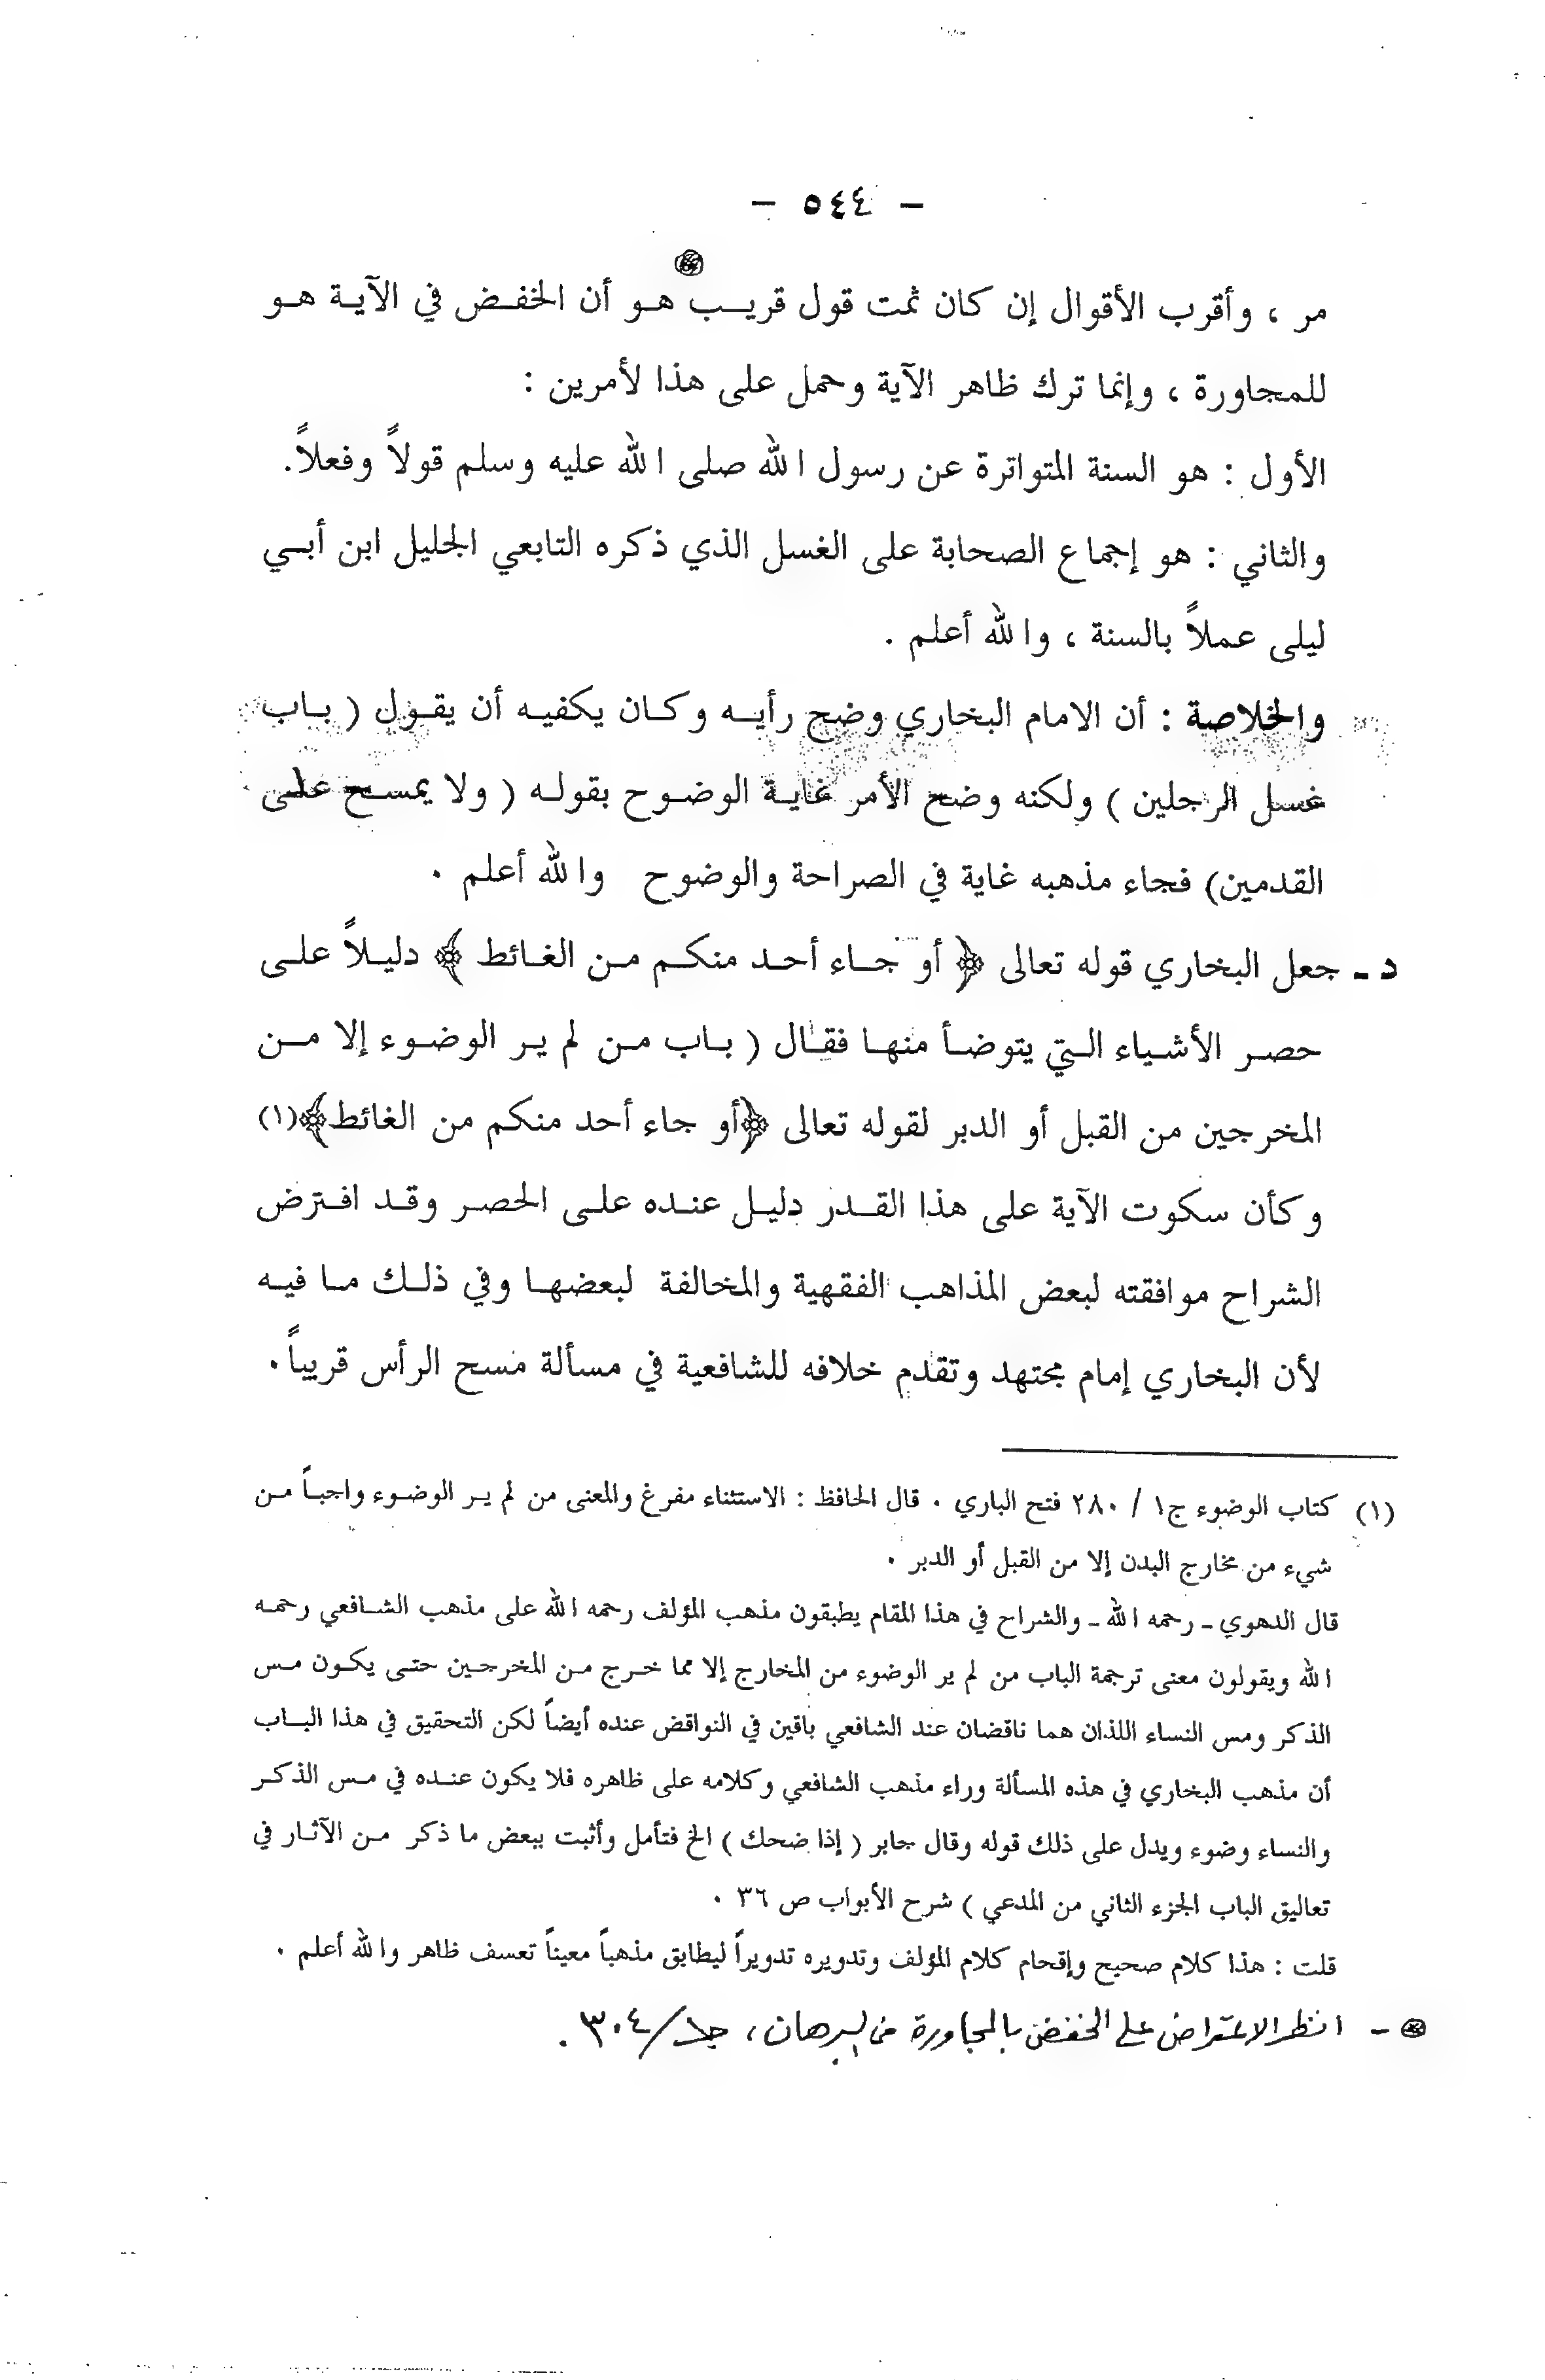 - ٥٤٤ -
مر ، وأقرب الأقوال إن كان ثمت قول قريب هو أن الخفض في الآية هو
للمجاورة ، وإنما ترك ظاهر الآية وحمل على هذا لأمرين :
الأول : هو السنة المتواترة عن رسول الله صلى الله عليه وسلم قولاً وفعلاً.
والثاني : هو إجماع الصحابة على الغسل الذي ذكره التابعي الجليل ابن أبي
ليلى عملاً بالسنة ، والله أعلم .
والخلاصة : أن الامام البخاري وضح رأيه وكان يكفيه أن يقول ( باب
غسل الرجلين ) ولكنه وضح الأمر غاية الوضوح بقوله ( ولا يمسح على
القدمين) فجاء مذهبه غاية في الصراحة والوضوح والله أعلم .
د - جعل البخاري قوله تعالى ﴿ أو جاء أحد منكم من الغائط ﴾ دليلاً على
حصر الأشياء التي يتوضأ منها فقال ( باب من لم ير الوضوء إلا من
المخرجين من القبل أو الدبر لقوله تعالى ﴿أو جاء أحد منكم من الغائط﴾(١)
وكأن سكوت الآية على هذا القدر دليل عنده على الحصر وقد افترض
الشراح موافقته لبعض المذاهب الفقهية والمخالفة لبعضها وفي ذلك ما فيه
لأن البخاري إمام مجتهد وتقدم خلافه للشافعية في مسألة مسح الرأس قريباً.
(١) كتاب الوضوء ج١ / ٢٨٠ فتح الباري . قال الحافظ : الاستثناء مفرغ والمعنى من لم ير الوضوء واجباً من
شيء من مخارج البدن إلا من القبل أو الدبر .
قال الدهوي - رحمه الله - والشراح في هذا المقام يطبقون مذهب المؤلف رحمه الله على مذهب الشافعي رحمه
الله ويقولون معنى ترجمة الباب من لم ير الوضوء من المخارج إلا مما خرج من المخرجين حتى يكون مس
الذكر ومس النساء اللذان هما ناقضان عند الشافعي باقين في النواقض عنده أيضاً لكن التحقيق في هذا الباب
أن مذهب البخاري في هذه المسألة وراء مذهب الشافعي وكلامه على ظاهره فلا يكون عنده في مس الذكر
والنساء وضوء ويدل على ذلك قوله وقال جابر ( إذا ضحك ) الخ فتأمل وأثبت ببعض ما ذكر من الآثار في
تعاليق الباب الجزء الثاني من المدعي ) شرح الأبواب ص ٣٦ .
قلت : هذا كلام صحيح وإقحام كلام المؤلف وتدويره تدويراً ليطابق مذهباً معيناً تعسف ظاهر والله أعلم .
- انظر الاعتراض على الخفض بالمجاورة في البرهان ، ج١/٣٠٤ .